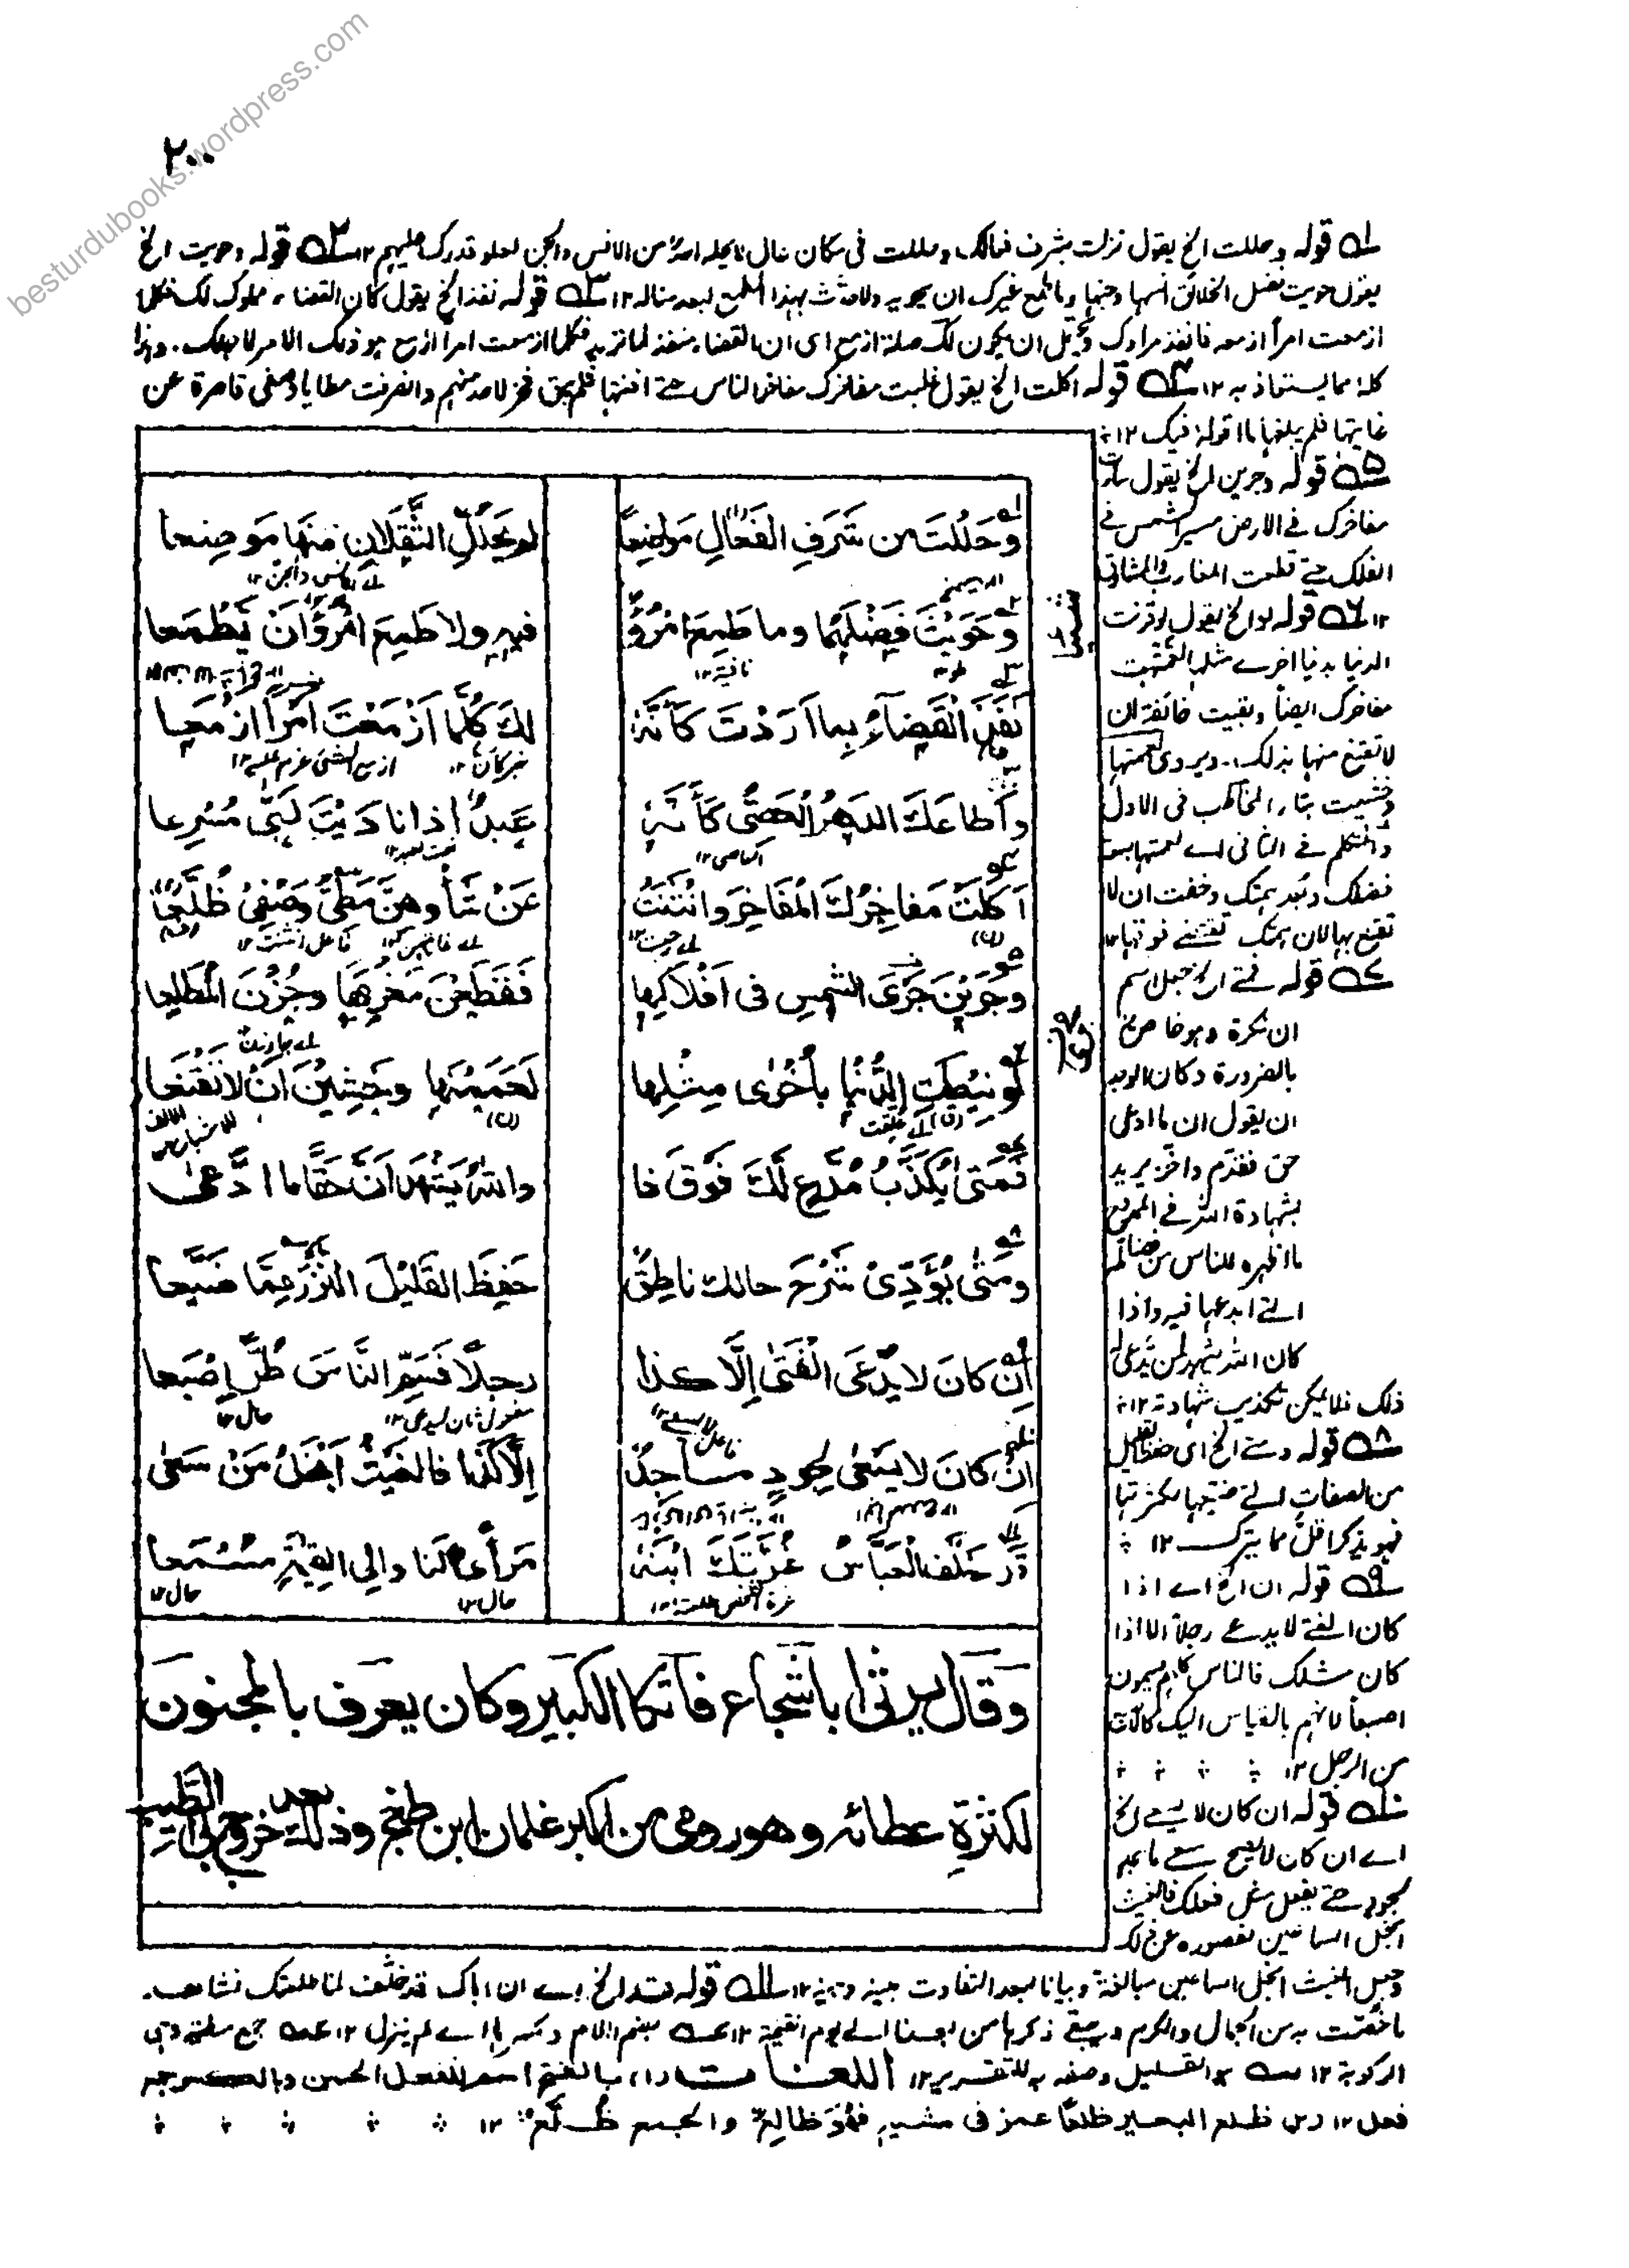 besturdubooks.wordpress.com
٢٠٠
١ه قوله وحللت الخ يقول نزلت بشرف فعالك وحللت فى مكان عال لا يحله احد من الانس والجن لعلو قدرك عليهم ١٢ ٢ه قوله وحويت الخ
يقول حويت فضل الخلائق انسها وجنها وما طمع غيرك ان يحويه ولا حدث بهذا الطمع لبعد مناله ١٢ ٣ه قوله نفذ الخ يقول كان القضاء مملوك لك فكلما
ازمعت امرأ ازمعه فانفذ مرادك ويحتمل ان يكون لك صلة ازمع اى ان القضاء منفذ لما تريد فكلما ازمعت امرأ ازمع هو ذلك الامر لاجلك. وهذا
كله مما يستعاذ به ١٢ ٤ه قوله اكلت الخ يقول غلبت مفاخرك مفاخر الناس حتے افنتها فلم يبق فخر لاحد منهم وانصرفت مطايا وصفى قاصرة عن
غايتها فلم يبلغها ما اقوله فيك ١٢
٥ه قوله وجرين الخ يقول سارت
مفاخرك فے الارض مسير الشمس فے
الفلك حتے قطعت المغارب والمشارق
١٢ ٦ه قوله لو الخ يقول لو قرنت
الدنيا بدنيا اخرے مثلها لعمتهت
مفاخرك ايضاً وبقيت خائفة ان
لا تقنع منها بذلك. ويروى لعممتها
وخشيت بتاء المخاطب فى الاول
والمتكلم فے الثانى اے لعممتها بسعة
فضلك وبعد همتك وخفت ان لا
تقنع بها لان همتك تقتضے فوقها ١٢
٧ه قوله فمتے الخ جعل اسم
ان نكرة وهو خاص فى
بالضرورة وكان الوجه
ان يقول ان ما ادعى
حق فقدم واخر يريد
بشهادة الله فے الممدوح
ما اظهره للناس من فضائله
التے ابدعها فيه واذا
كان الله يشهد لمن يدعى له
ذلك فلا يمكن تكذيب شهادته ١٢
٨ه قوله ومتے الخ اى حفظ القليل
من الصفات التے ضيعها بكثرتها
فهو يذكر اقل مما يترك ١٢
٩ه قوله ان الخ اے اذا
كان الفتے لا يدعے رجلاً الا اذا
كان مثلك فالناس كلهم يسمون
اصبعاً لانهم بالقياس اليك كالاصبع
من الرجل ١٢
١٠ه قوله ان كان لا يسعے الخ
اے ان كان لا يصح سعے ماجد
لجود حتے يفعل مثل فعلك فالغيث
ابخل الساعين لقصوره عن ذلك
وَحَلَلْتَ من شَرَفِ الفَعَالِ مَواضِعاً لم يَحْلُلِ الثَّقَلَانِ مِنْهَا مَوضِعا
اے الانس والجن ١٢
وَحَوَيْتَ فَضْلَهُما وما طَمِعَ امْرُؤٌ فيه ولا طَمِعَ امْرُؤٌ اَنْ يَطْمَعا
نافية ١٢
نَفَذَ الْقَضَاءُ بِما اَرَدْتَ كَأَنَّهُ لَكَ كُلَّما اَزْمَعْتَ اَمْراً اَزْمَعا
خبر كان ١٢ ازمع الشئ عزم عليه ١٢
وأَطاعَكَ الدَهْرُ الْعَصِىُّ كَأَنَّهُ عَبدٌ إذا نادَيْتَ لَبَّى مُسْرِعا
العاصى ١٢ نعت لعبد ١٢
اَكَلَتْ مَفاخِرُكَ الْمَفَاخِرَ وانْثَنَتْ عَنْ شَأْوِهِنَّ مَطِىُّ وَصْفِىَ ظُلَّعا
اے رجعت ١٢ اے غايتهن فاعل انثنت ١٢
وجَرَيْنَ جَرْىَ الشمسِ فى اَفْلَاكِها فَقَطَعْنَ مَغْرِبَها وجُزْنَ الْمَطْلِعا
اے جاوزن
لَو نِيْطَتِ الدُّنْيا بأُخْرٰى مِثْلِها لَعَمَمْنَها وخَشِيْنَ اَنْ لا تَقْنَعا
(ن) اے علقت (ن)
فَمَتى يُكَذَّبُ مُدَّعٍ لَكَ فَوقَ ذا واللهُ يَشْهَدُ اَنَّ حَقّاً ما ادَّعٰى
ومَتى يُؤَدِّىْ شَرْحَ حالك ناطِقٌ حَفِظَ القَليْلَ النَّزْرَ مِمَّا ضَيَّعا
اِنْ كانَ لا يُدْعَى الْفَتٰى اِلَّا كذا رجلاً فَسَمِّ النَّاسَ طُرًّا اِصْبَعا
مفعول ثان ليدعى ١٢ حال ١٢
اِنْ كانَ لا يَسْعٰى لِجُودٍ ماجِدٌ اِلَّا كَذَا فالغَيْثُ اَبْخَلُ مَنْ سَعٰى
قَد خَلَّفَ الْعَبَّاسُ غُرَّتَكَ ابْنَهُ مَرأًى لَنا وإلى القِيٰمَةِ مَسْمَعا
غرة الشخص طلعته ١٢ حال ١٢ حال ١٢
وَقَال يرثى ابا شجاع فاتكا الكبير وكان يعرف بالمجنون
لكثرةِ عطائه وهو رومى من اكبر غلمان ابن طغج وذلك بعد خروج ابى الطيب
وجعل الغيث ابخل الساعين مبالغة وبيانا لبعد التفاوت بينه وبينه ١٢ ١١ه قوله قد الخ يريد ان اباك قد خلف لنا طلعتك نشاهد
ما خصت به من الجمال والكرم ويبقے ذكرها من بعدنا الے يوم القيٰمة ١٢ بضم اللام وكسرها اے لم ينزل ١٢ جمع مطية وهى
الركوبة ١٢ القليل وصفه به للتقرير ١٢ اللغات (١) بالفتح اسم للفعل الحسن وبالكسر جمع
فعل ١٢ (س) ظلع البعير ظلعًا غمز فى مشيه فهُوَ ظالِعٌ والجمع ظُلَّعٌ ١٢